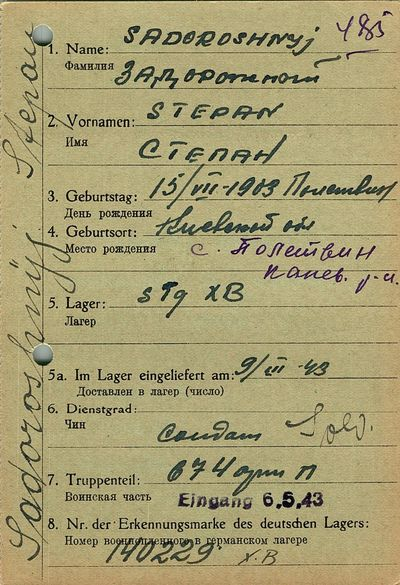 485
1. Name: SADOROSHNYJ
Фамилия Задорожной
2. Vornamen: STEPAN
Имя
СТЕПАН
3. Geburtstag: 15/VII-1903
День рождения
4. Geburtsort: Киевской обл
Место рождения с. Полствин
Канев. р-н.
5. Lager: stlg XB
Лагер
5a. Im Lager eingeliefert am: 9/III-43
Доставлен в лагер (число)
6. Dienstgrad:
Чин
солдат Sold.
7. Truppenteil: 674 арт П
Воинская часть Eingang 6.5.43
8. Nr. der Erkennungsmarke des deutschen Lagers:
Номер военнопленного в германском лагере
140229. X.B
Sadoroshnyj Stepan